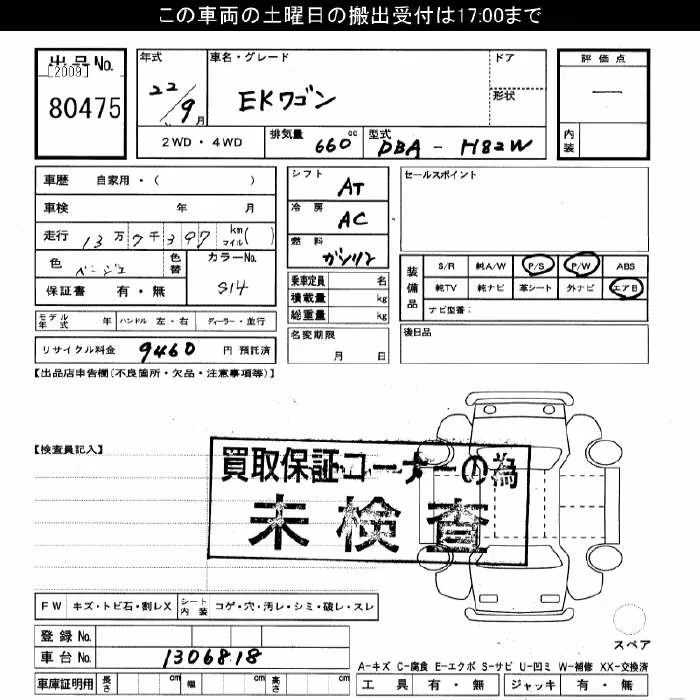 この車両の土曜日の搬出受付は17:00まで
出品No.
[2009]
80475
年式
22/9月
車名・グレード
EKワゴン
ドア
形状
2WD・4WD
排気量
660cc
型式
DBA-H82W
評価点
一
内装
車歴 自家用・( )
車検 年 月
走行 13万7千397 km マイル( )
色 ベージュ 色替 カラーNo. S14
保証書 有・無
シフト
AT
冷房
AC
燃料
ガソリン
セールスポイント
装備品
S/R 純A/W P/S P/W ABS
純TV 純ナビ 革シート 外ナビ エアB
ナビ型番:
乗車定員 名
積載量 kg
総重量 kg
モデル年式 年 ハンドル 左・右 ディーラー・並行
名変期限
月 日
後日品
リサイクル料金 9460 円 預託済
【出品店申告欄(不良箇所・欠品・注意事項等)】
【検査員記入】
買取保証コーナーの為
未検査
FW キズ・トビ石・割レX シート内装 コゲ・穴・汚レ・シミ・破レ・スレ
登録No.
車台No. 1306818
車庫証明用 長さ cm 幅 cm 高さ cm
スペア
A-キズ C-腐食 E-エクボ S-サビ U-凹ミ W-補修 XX-交換済
工具 有・無 ジャッキ 有・無